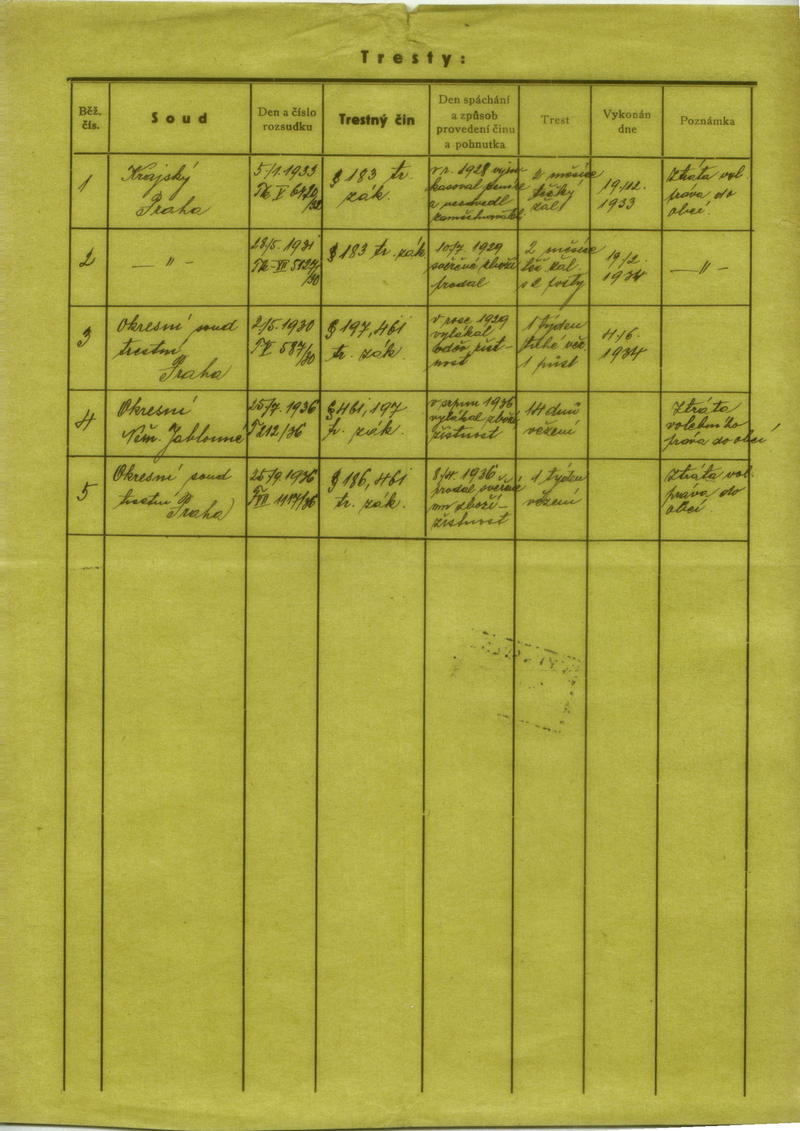 Tresty:
Běž. čís.
Soud
Den a číslo rozsudku
Trestný čin
Den spáchání a způsob provedení činu a pohnutka
Trest
Vykonán dne
Poznámka
1
Krajský
Praha
5/1.1933
§ 183 tr.
zák.
v r. 1928
2 měsíce
těžký
žal
19/12.
1933
Ztráta vol.
práva do
obcí.
2
— „ —
23/5. 1931
§ 183 tr. zák
10/7. 1929
svěřené zboží
prodal
2 měsíce
těž. žal.
s 2 posty
19/2.
1934
— „ —
3
Okresní soud
trestní
Praha
2/5.1930
T V 587/30
§ 197, 461
tr. zák
v roce 1929
vylákal
oděv, zišt-
nost
1 týden
tuhé věz.
1 půst
4/6.
1934
4
Okresní
Něm. Jablonné
25/7. 1936
T 212/36
§ 461, 197
tr. zák.
v srpnu 1936
vylákal zboží
zištnost
14 dnů
vězení
Ztráta
volebního
práva do obcí
5
Okresní soud
trestní
Praha
25/9.1936
1187/36
§ 186, 461
tr. zák.
8/4. 1936
prodal svěřené
mu zboží—
zištnost
1 týden
vězení
Ztráta vol.
práva do
obcí